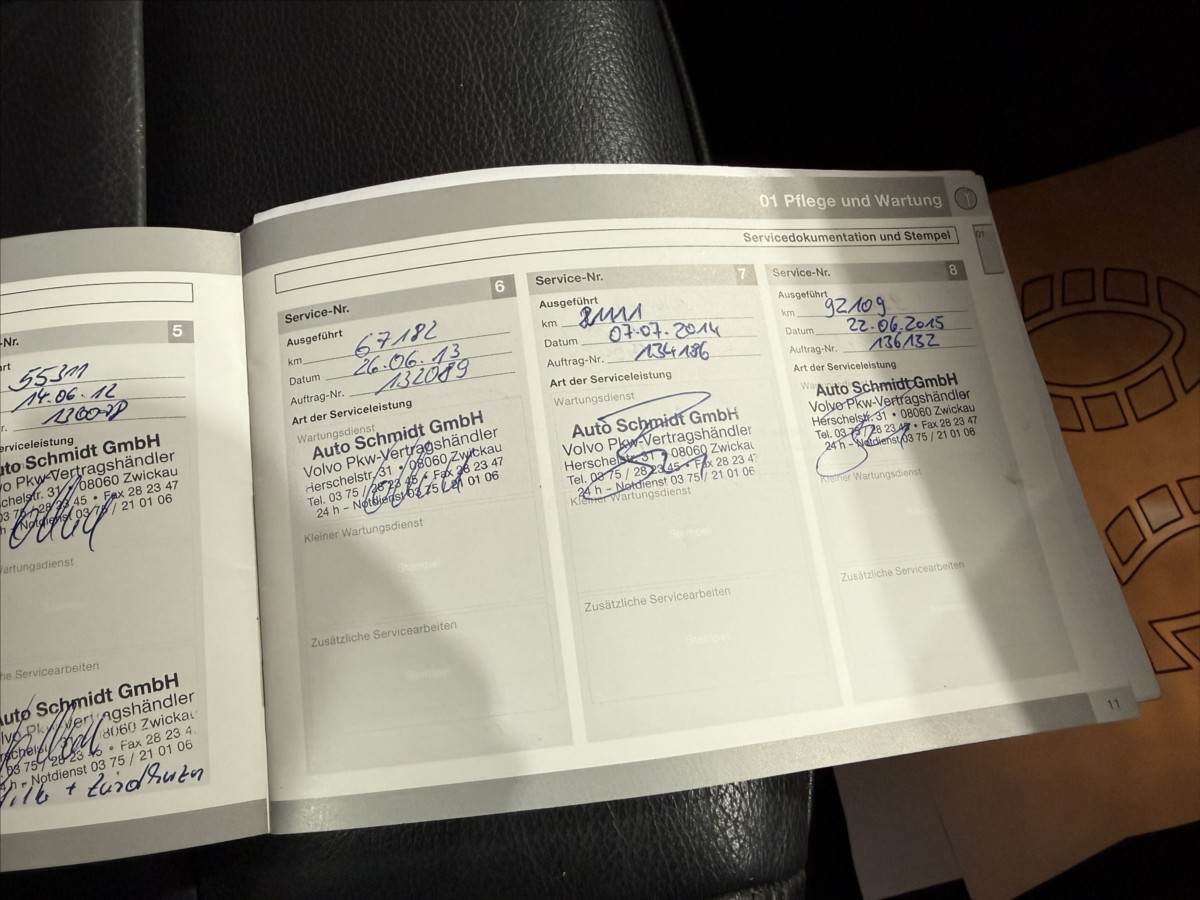 5
-Nr.
55311
14.06.12
Serviceleistung
Auto Schmidt GmbH
Volvo Pkw-Vertragshändler
Herschelstr. 31 • 08060 Zwickau
03 75 / 28 23 45 • Fax 28 23 47
Notdienst 03 75 / 21 01 06
Wartungsdienst
Servicearbeiten
Auto Schmidt GmbH
Vertragshändler
08060 Zwickau
03 75 / 28 23 45 • Fax 28 23 4
Notdienst 03 75 / 21 01 06
01 Pflege und Wartung
Servicedokumentation und Stempel
01
Service-Nr. 6
Ausgeführt
km 67182
Datum 26.06.13
Auftrag-Nr. 132089
Art der Serviceleistung
Wartungsdienst
Auto Schmidt GmbH
Volvo Pkw-Vertragshändler
Herschelstr. 31 • 08060 Zwickau
Tel. 03 75 / 28 23 45 • Fax 28 23 47
24 h – Notdienst 03 75 / 21 01 06
Kleiner Wartungsdienst
Stempel
Zusätzliche Servicearbeiten
Stempel
Service-Nr. 7
Ausgeführt
km 81111
Datum 07.07.2014
Auftrag-Nr. 134186
Art der Serviceleistung
Wartungsdienst
Auto Schmidt GmbH
Volvo Pkw-Vertragshändler
Herschelstr. 31 • 08060 Zwickau
Tel. 03 75 / 28 23 45 • Fax 28 23 47
24 h – Notdienst 03 75 / 21 01 06
Kleiner Wartungsdienst
Stempel
Zusätzliche Servicearbeiten
Stempel
Service-Nr. 8
Ausgeführt
km 92109
Datum 22.06.2015
Auftrag-Nr. 136132
Art der Serviceleistung
Auto Schmidt GmbH
Volvo Pkw-Vertragshändler
Herschelstr. 31 • 08060 Zwickau
Tel. 03 75 / 28 23 45 • Fax 28 23 47
24 h – Notdienst 03 75 / 21 01 06
Kleiner Wartungsdienst
Zusätzliche Servicearbeiten
11